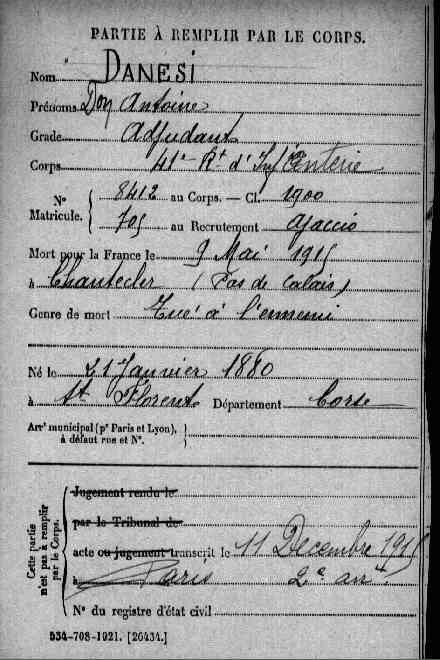 PARTIE À REMPLIR PAR LE CORPS.
Nom DANESI
Prénoms Don Antoine
Grade Adjudant
Corps 41e Rt d'Infanterie
Nº Matricule. { 8412 au Corps. — Cl. 1900
705 au Recrutement Ajaccio
Mort pour la France le 9 Mai 1915
à Chantecler (Pas de Calais)
Genre de mort Tué à l'ennemi
Né le 21 Janvier 1880
à St Florent Département Corse
Arrt municipal (pr Paris et Lyon),
à défaut rue et Nº.
Cette partie
n'est pas à remplir
par le Corps.
Jugement rendu le
par le Tribunal de
acte ou jugement transcrit le 11 Decembre 1915
à Paris 2e arrt
Nº du registre d'état civil
534-708-1921. [26434.]